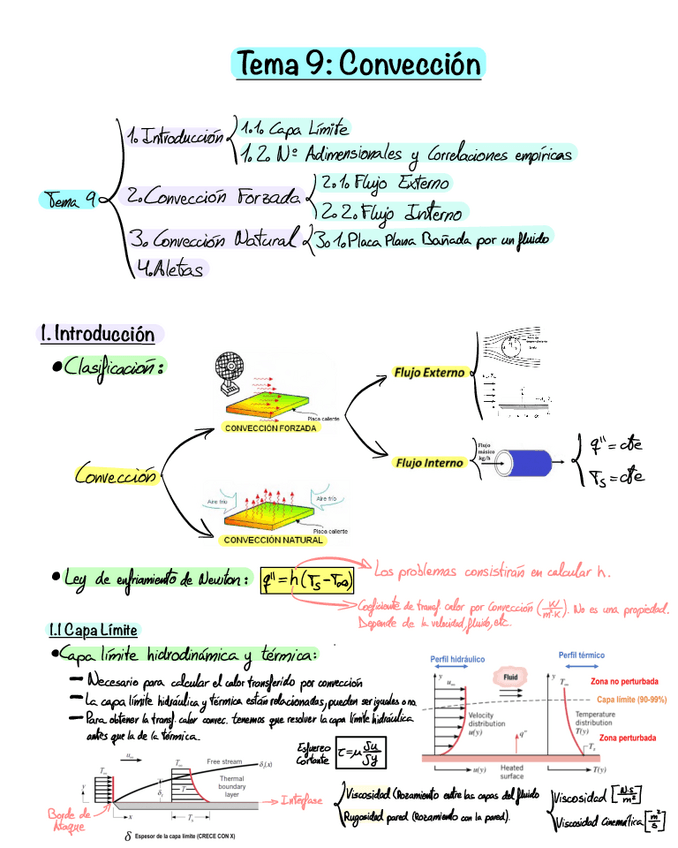 Tema 9: Convección
Tema 9
1. Introducción
1.1. Capa Límite
1.2. Nº Adimensionales y Correlaciones empíricas
2. Convección Forzada
2.1. Flujo Externo
2.2. Flujo Interno
3. Convección Natural
3.1. Placa Plana Bañada por un fluido
4. Aletas
1. Introducción
• Clasificación:
Convección
Placa caliente
CONVECCIÓN FORZADA
Aire frío
Aire frío
Placa caliente
CONVECCIÓN NATURAL
Flujo Externo
Flujo Interno
Flujo másico kg/h
q'' = cte
Ts = cte
• Ley de enfriamiento de Newton: q'' = h(Ts - T∞)
Los problemas consistirán en calcular h.
Coeficiente de transf. calor por convección (W/m²·K). No es una propiedad.
Depende de la velocidad, fluido, etc.
1.1 Capa Límite
• Capa límite hidrodinámica y térmica:
– Necesario para calcular el calor transferido por convección
– La capa límite hidráulica y térmica están relacionadas, pueden ser iguales o no.
– Para obtener la transf. calor convec. tenemos que resolver la capa límite hidráulica
antes que la de la térmica.
Perfil hidráulico
Fluid
Perfil térmico
y
u∞
y
T∞
Zona no perturbada
Capa límite (90-99%)
Velocity distribution u(y)
Temperature distribution T(y)
q''
Ts
Zona perturbada
u(y)
Heated surface
T(y)
Esfuerzo Cortante
τ = μ δu/δy
u∞
T∞
T∞
Free stream
δt(x)
y
δt
T
Thermal boundary layer
x
Ts
Borde de Ataque
Interfase
δ Espesor de la capa límite (CRECE CON X)
Viscosidad (Rozamiento entre las capas del fluido
Rugosidad pared (Rozamiento con la pared).
Viscosidad [Ns/m²]
Viscosidad Cinemática [m²/s]